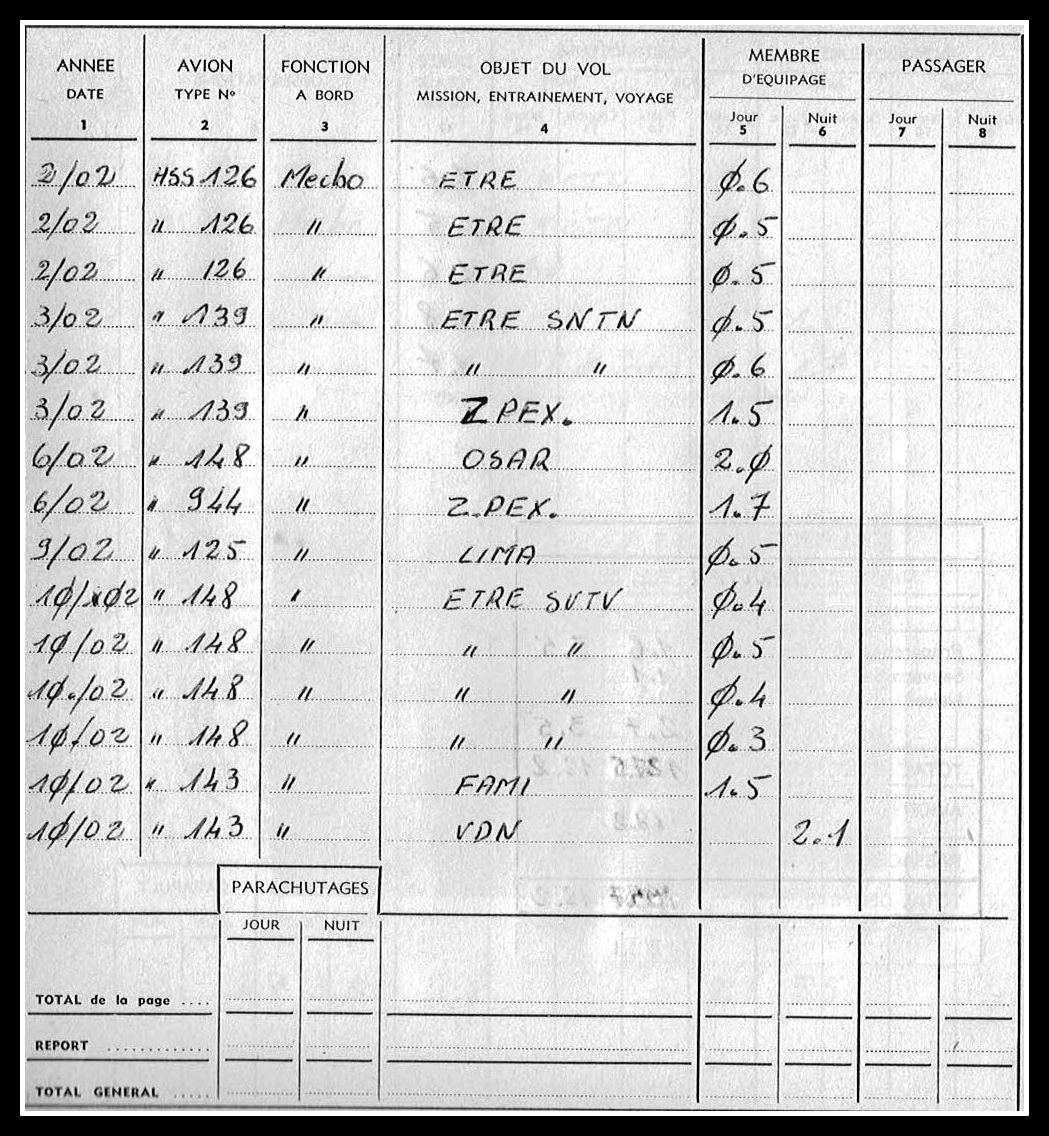 ANNEE AVION FONCTION OBJET DU VOL MEMBRE D'EQUIPAGE PASSAGER
DATE TYPE Nº A BORD MISSION, ENTRAINEMENT, VOYAGE Jour Nuit Jour Nuit
1 2 3 4 5 6 7 8
2/02 HSS 126 Mecbo ETRE Ø.6
2/02 " 126 " ETRE Ø.5
2/02 " 126 " ETRE Ø.5
3/02 " 139 " ETRE SNTN Ø.5
3/02 " 139 " " " Ø.6
3/02 " 139 " Z PEX. 1.5
6/02 " 148 " OSAR 2.Ø
6/02 " 944 " Z.PEX. 1.7
9/02 " 125 " LIMA Ø.5
1Ø/02 " 148 " ETRE SVTV Ø.4
1Ø/02 " 148 " " " Ø.5
1Ø/02 " 148 " " " Ø.4
1Ø/02 " 148 " " " Ø.3
1Ø/02 " 143 " FAMI 1.5
1Ø/02 " 143 " VDN 2.1
PARACHUTAGES
JOUR NUIT
TOTAL de la page ....
REPORT .............
TOTAL GENERAL .....